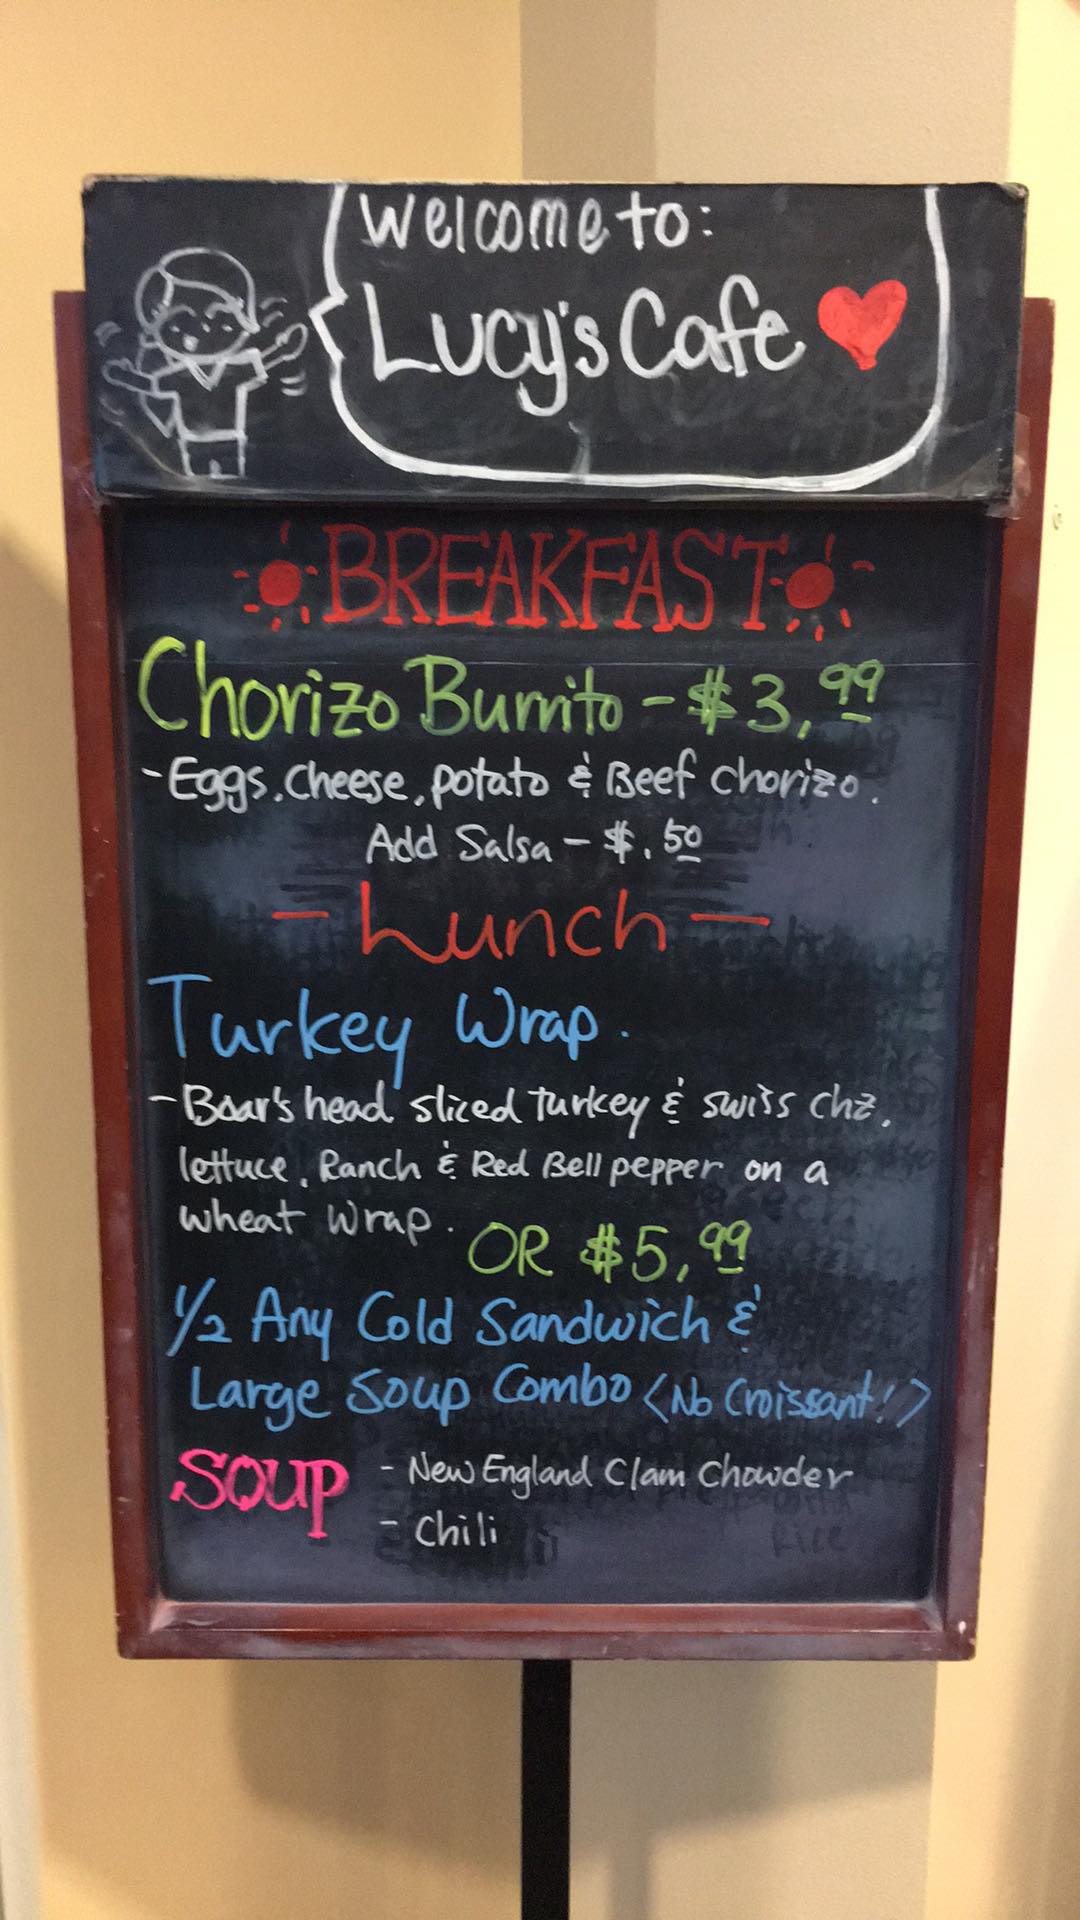 Welcome to:
Lucy's Cafe
BREAKFAST
Chorizo Burrito - $3.99
- Eggs, cheese, potato & Beef chorizo.
Add Salsa - $.50
- Lunch -
Turkey Wrap.
- Boar's head sliced turkey & swiss chz,
lettuce, Ranch & Red Bell pepper on a
wheat wrap.
OR $5.99
1/2 Any Cold Sandwich &
Large Soup Combo <No Croissant!>
SOUP - New England Clam Chowder
- Chili